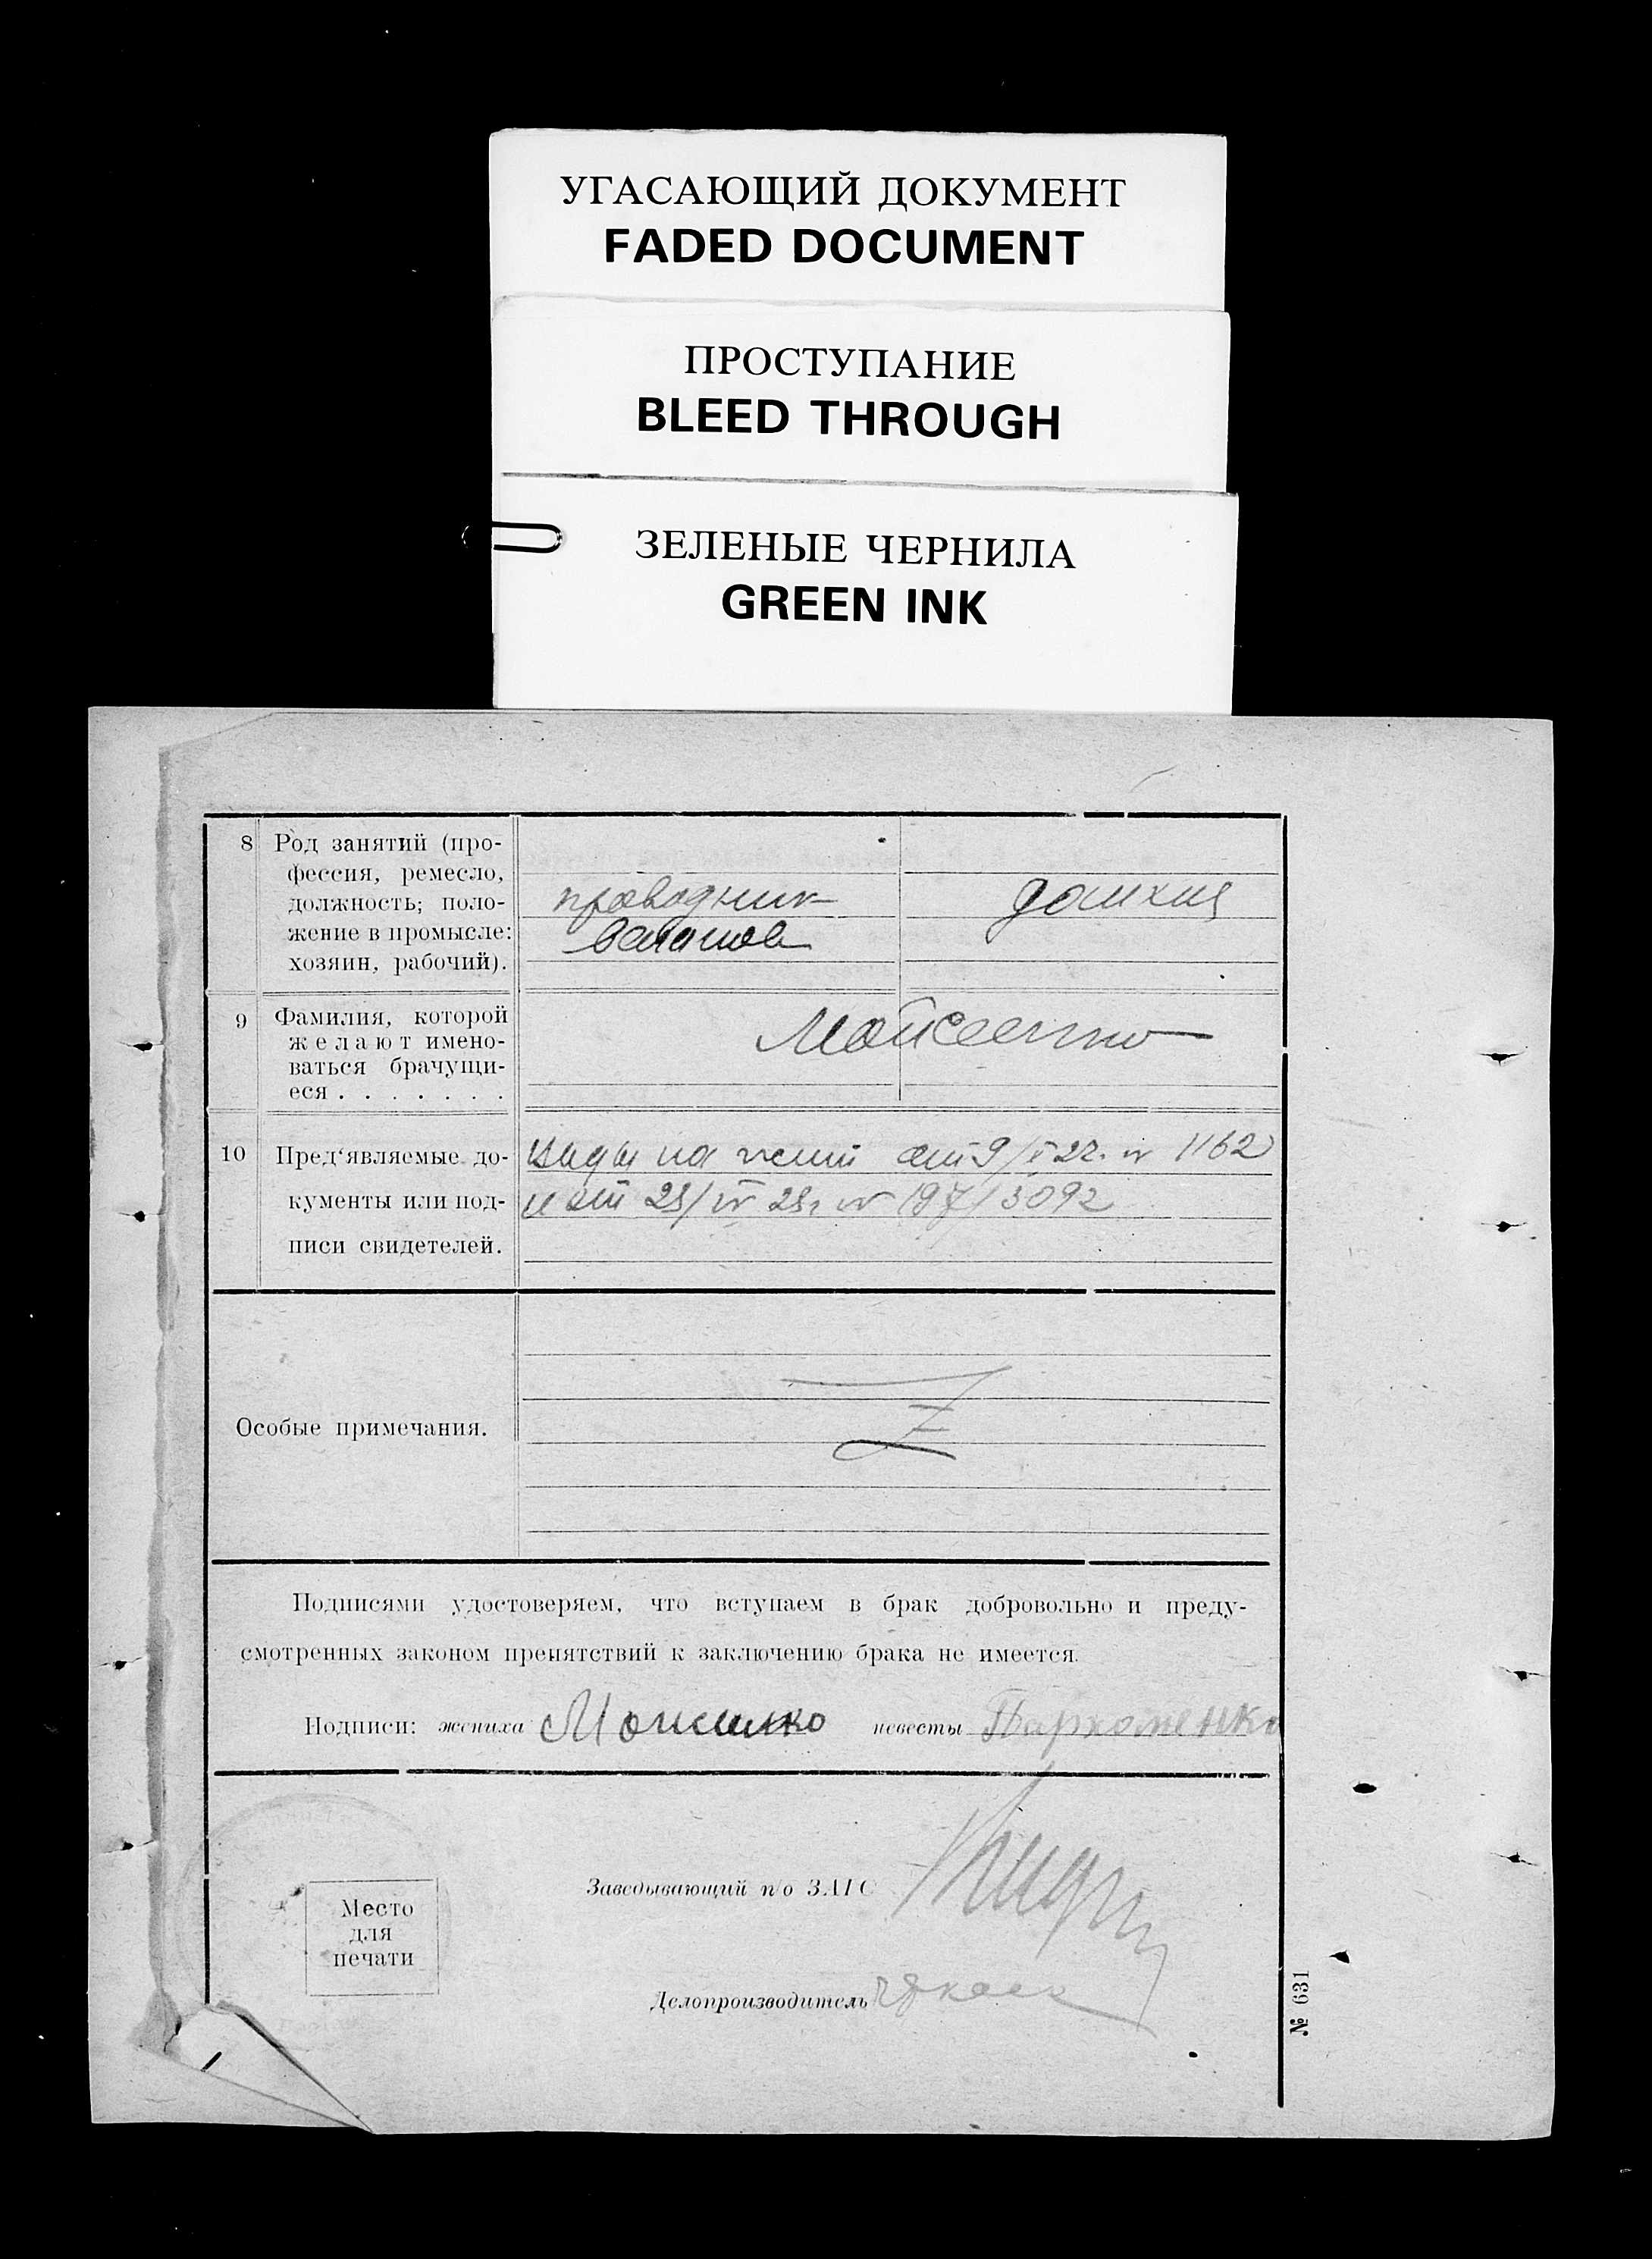 УГАСАЮЩИЙ ДОКУМЕНТ
FADED DOCUMENT
ПРОСТУПАНИЕ
BLEED THROUGH
ЗЕЛЕНЫЕ ЧЕРНИЛА
GREEN INK
8 Род занятий (про-
фессия, ремесло,
должность; поло-
жение в промысле:
хозяин, рабочий).
проводник
вагонов
домхоз
9 Фамилия, которой
желают имено-
ваться брачущи-
еся . . . . . . .
Мойсеенко
10 Пред'являемые до-
кументы или под-
писи свидетелей.
Виды на жит от 9/ 27. № 1162
и от 28/IV 28г № 197/3092
Особые примечания.
Z
Подписями удостоверяем, что вступаем в брак добровольно и преду-
смотренных законом препятствий к заключению брака не имеется.
Подписи: жениха невесты Пархоменко
Заведывающий п/о ЗАГС
Место
для
печати
Делопроизводитель
№ 631